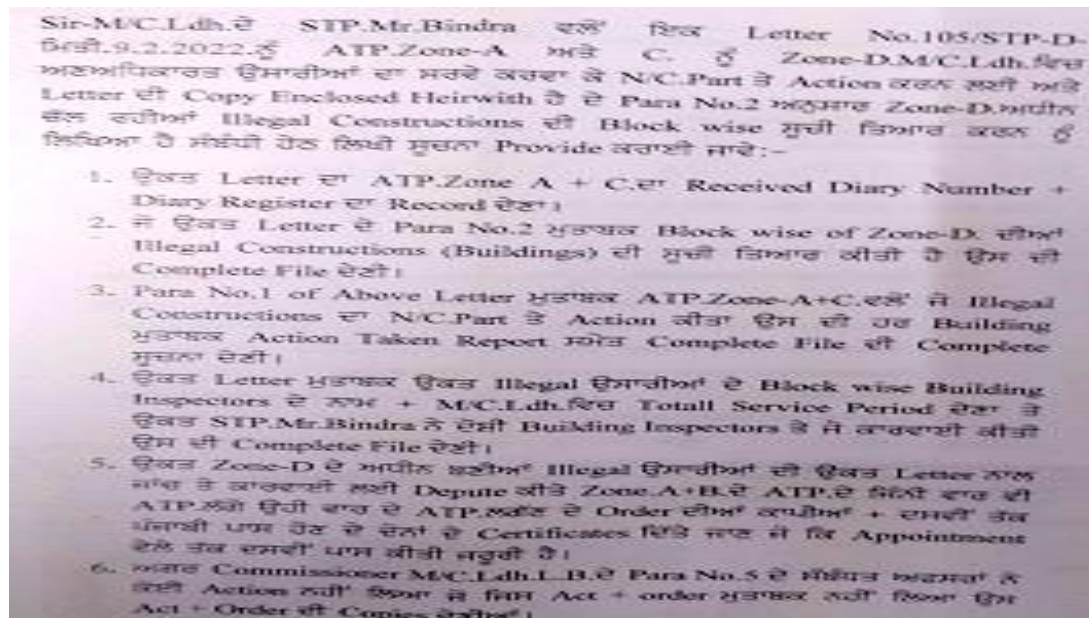 Sir-M/C.Ldh.ਦੇ STP.Mr.Bindra ਵਲੋਂ ਇਕ Letter No.105/STP-D-
ਮਿਤੀ.9.2.2022.ਨੂੰ ATP.Zone-A ਅਤੇ C. ਨੂੰ Zone-D.M/C.Ldh.ਵਿਚ
ਅਣਅਧਿਕਾਰਤ ਉਸਾਰੀਆਂ ਦਾ ਸਰਵੇ ਕਰਵਾ ਕੇ N/C.Part ਤੇ Action ਕਰਨ ਲਈ ਅਤੇ
Letter ਦੀ Copy Enclosed Heirwith ਹੈ ਦੇ Para No.2 ਅਨੁਸਾਰ Zone-D.ਅਧੀਨ
ਚੱਲ ਰਹੀਆਂ Illegal Constructions ਦੀ Block wise ਸੂਚੀ ਤਿਆਰ ਕਰਨ ਨੂੰ
ਲਿਖਿਆ ਹੈ ਸੰਬੰਧੀ ਹੇਠ ਲਿਖੀ ਸੂਚਨਾ Provide ਕਰਾਈ ਜਾਵੇ:-
1. ਉਕਤ Letter ਦਾ ATP.Zone A + C.ਦਾ Received Diary Number +
Diary Register ਦਾ Record ਦੇਣਾ।
2. ਜੋ ਉਕਤ Letter ਦੇ Para No.2 ਮੁਤਾਬਕ Block wise of Zone-D. ਦੀਆਂ
Illegal Constructions (Buildings) ਦੀ ਸੂਚੀ ਤਿਆਰ ਕੀਤੀ ਹੈ ਉਸ ਦੀ
Complete File ਦੇਣੀ।
3. Para No.1 of Above Letter ਮੁਤਾਬਕ ATP.Zone-A+C.ਵਲੋਂ ਜੋ Illegal
Constructions ਦਾ N/C.Part ਤੇ Action ਕੀਤਾ ਉਸ ਦੀ ਹਰ Building
ਮੁਤਾਬਕ Action Taken Report ਸਮੇਤ Complete File ਦੀ Complete
ਸੂਚਨਾ ਦੇਣੀ।
4. ਉਕਤ Letter ਮੁਤਾਬਕ ਉਕਤ Illegal ਉਸਾਰੀਆਂ ਦੇ Block wise Building
Inspectors ਦੇ ਨਾਮ + M/C.Ldh.ਵਿਚ Totall Service Period ਦੇਣਾ ਤੇ
ਉਕਤ STP.Mr.Bindra ਨੇ ਦੋਸ਼ੀ Building Inspectors ਤੇ ਜੋ ਕਾਰਵਾਈ ਕੀਤੀ
ਉਸ ਦੀ Complete File ਦੇਣੀ।
5. ਉਕਤ Zone-D ਦੇ ਅਧੀਨ ਬਣੀਆਂ Illegal ਉਸਾਰੀਆਂ ਦੀ ਉਕਤ Letter ਨਾਲ
ਜਾਂਚ ਤੇ ਕਾਰਵਾਈ ਲਈ Depute ਕੀਤੇ Zone.A+B.ਦੇ ATP.ਦੇ ਜਿੰਨੀ ਵਾਰ ਵੀ
ATP.ਲਗੇ ਉਹੀ ਵਾਰ ਦੇ ATP.ਲਗੱਣ ਦੇ Order ਦੀਆਂ ਕਾਪੀਆਂ + ਦਸਵੀਂ ਤੱਕ
ਪੰਜਾਬੀ ਪਾਸ ਹੋਣ ਦੇ ਦੋਨਾਂ ਦੇ Certificates ਦਿੱਤੇ ਜਾਣ ਜੋ ਕਿ Appointment
ਵੇਲੇ ਤੱਕ ਦਸਵੀਂ ਪਾਸ ਕੀਤੀ ਜਰੂਰੀ ਹੈ।
6. ਅਗਰ Commissioner M/C.Ldh.I..B.ਦੇ Para No.5 ਦੇ ਸੰਬੰਧਤ ਅਫਸਰਾਂ ਨੇ
ਕੋਈ Action ਨਹੀਂ ਲਿਆ ਜੋ ਜਿਸ Act + order ਮੁਤਾਬਕ ਨਹੀਂ ਲਿਆ ਉਸ
Act + Order ਦੀ Copies ਦੇਣੀਆਂ।